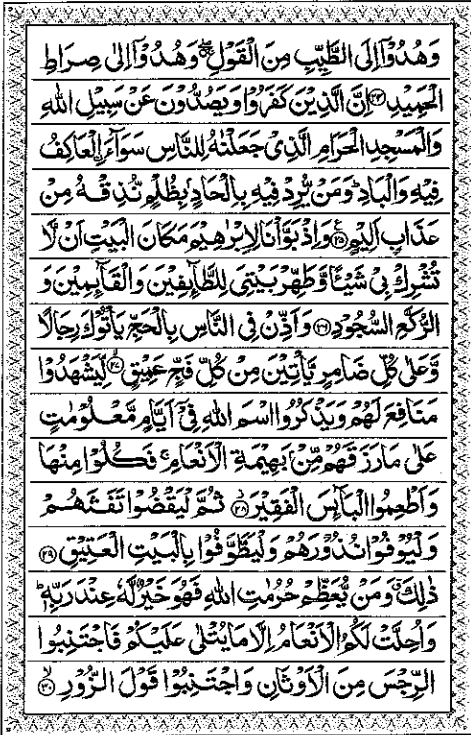 وَهُدُوْۤا اِلَى الطَّیِّبِ مِنَ الْقَوْلِ ۖۚ وَهُدُوْۤا اِلٰی صِرَاطِ
الْحَمِیْدِ ﴿۲۴﴾ اِنَّ الَّذِیْنَ كَفَرُوْا وَیَصُدُّوْنَ عَنْ سَبِیْلِ اللّٰهِ
وَالْمَسْجِدِ الْحَرَامِ الَّذِیْ جَعَلْنٰهُ لِلنَّاسِ سَوَآءَ ِ۟الْعَاكِفُ
فِیْهِ وَالْبَادِ ؕ وَمَنْ یُّرِدْ فِیْهِ بِاِلْحَادٍۭ بِظُلْمٍ نُّذِقْهُ مِنْ
عَذَابٍ اَلِیْمٍ ﴿۲۵﴾ وَاِذْ بَوَّاْنَا لِاِبْرٰهِیْمَ مَكَانَ الْبَیْتِ اَنْ لَّا
تُشْرِكْ بِیْ شَیْـًٔا وَّطَهِّرْ بَیْتِیَ لِلطَّآىِٕفِیْنَ وَالْقَآىِٕمِیْنَ وَ
الرُّكَّعِ السُّجُوْدِ ﴿۲۶﴾ وَاَذِّنْ فِی النَّاسِ بِالْحَجِّ یَاْتُوْكَ رِجَالًا
وَّعَلٰی كُلِّ ضَامِرٍ یَّاْتِیْنَ مِنْ كُلِّ فَجٍّ عَمِیْقٍ ﴿۲۷﴾ لِّیَشْهَدُوْا
مَنَافِعَ لَهُمْ وَیَذْكُرُوا اسْمَ اللّٰهِ فِیْۤ اَیَّامٍ مَّعْلُوْمٰتٍ
عَلٰی مَا رَزَقَهُمْ مِّنْۢ بَهِیْمَةِ الْاَنْعَامِ ۚ فَكُلُوْا مِنْهَا
وَاَطْعِمُوا الْبَآىِٕسَ الْفَقِیْرَ ﴿۲۸﴾ ثُمَّ لْیَقْضُوْا تَفَثَهُمْ
وَلْیُوْفُوْا نُذُوْرَهُمْ وَلْیَطَّوَّفُوْا بِالْبَیْتِ الْعَتِیْقِ ﴿۲۹﴾
ذٰلِكَ ۗ وَمَنْ یُّعَظِّمْ حُرُمٰتِ اللّٰهِ فَهُوَ خَیْرٌ لَّهٗ عِنْدَ رَبِّهٖ ؕ
وَاُحِلَّتْ لَكُمُ الْاَنْعَامُ اِلَّا مَا یُتْلٰی عَلَیْكُمْ فَاجْتَنِبُوا
الرِّجْسَ مِنَ الْاَوْثَانِ وَاجْتَنِبُوْا قَوْلَ الزُّوْرِ ﴿۳۰﴾